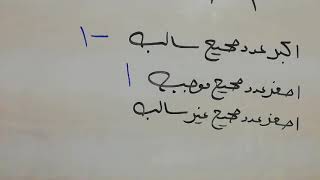 اكبر عدد صحيح سالب -١
اصغر عدد صحيح موجب ١
اصغر عدد صحيح غير سالب